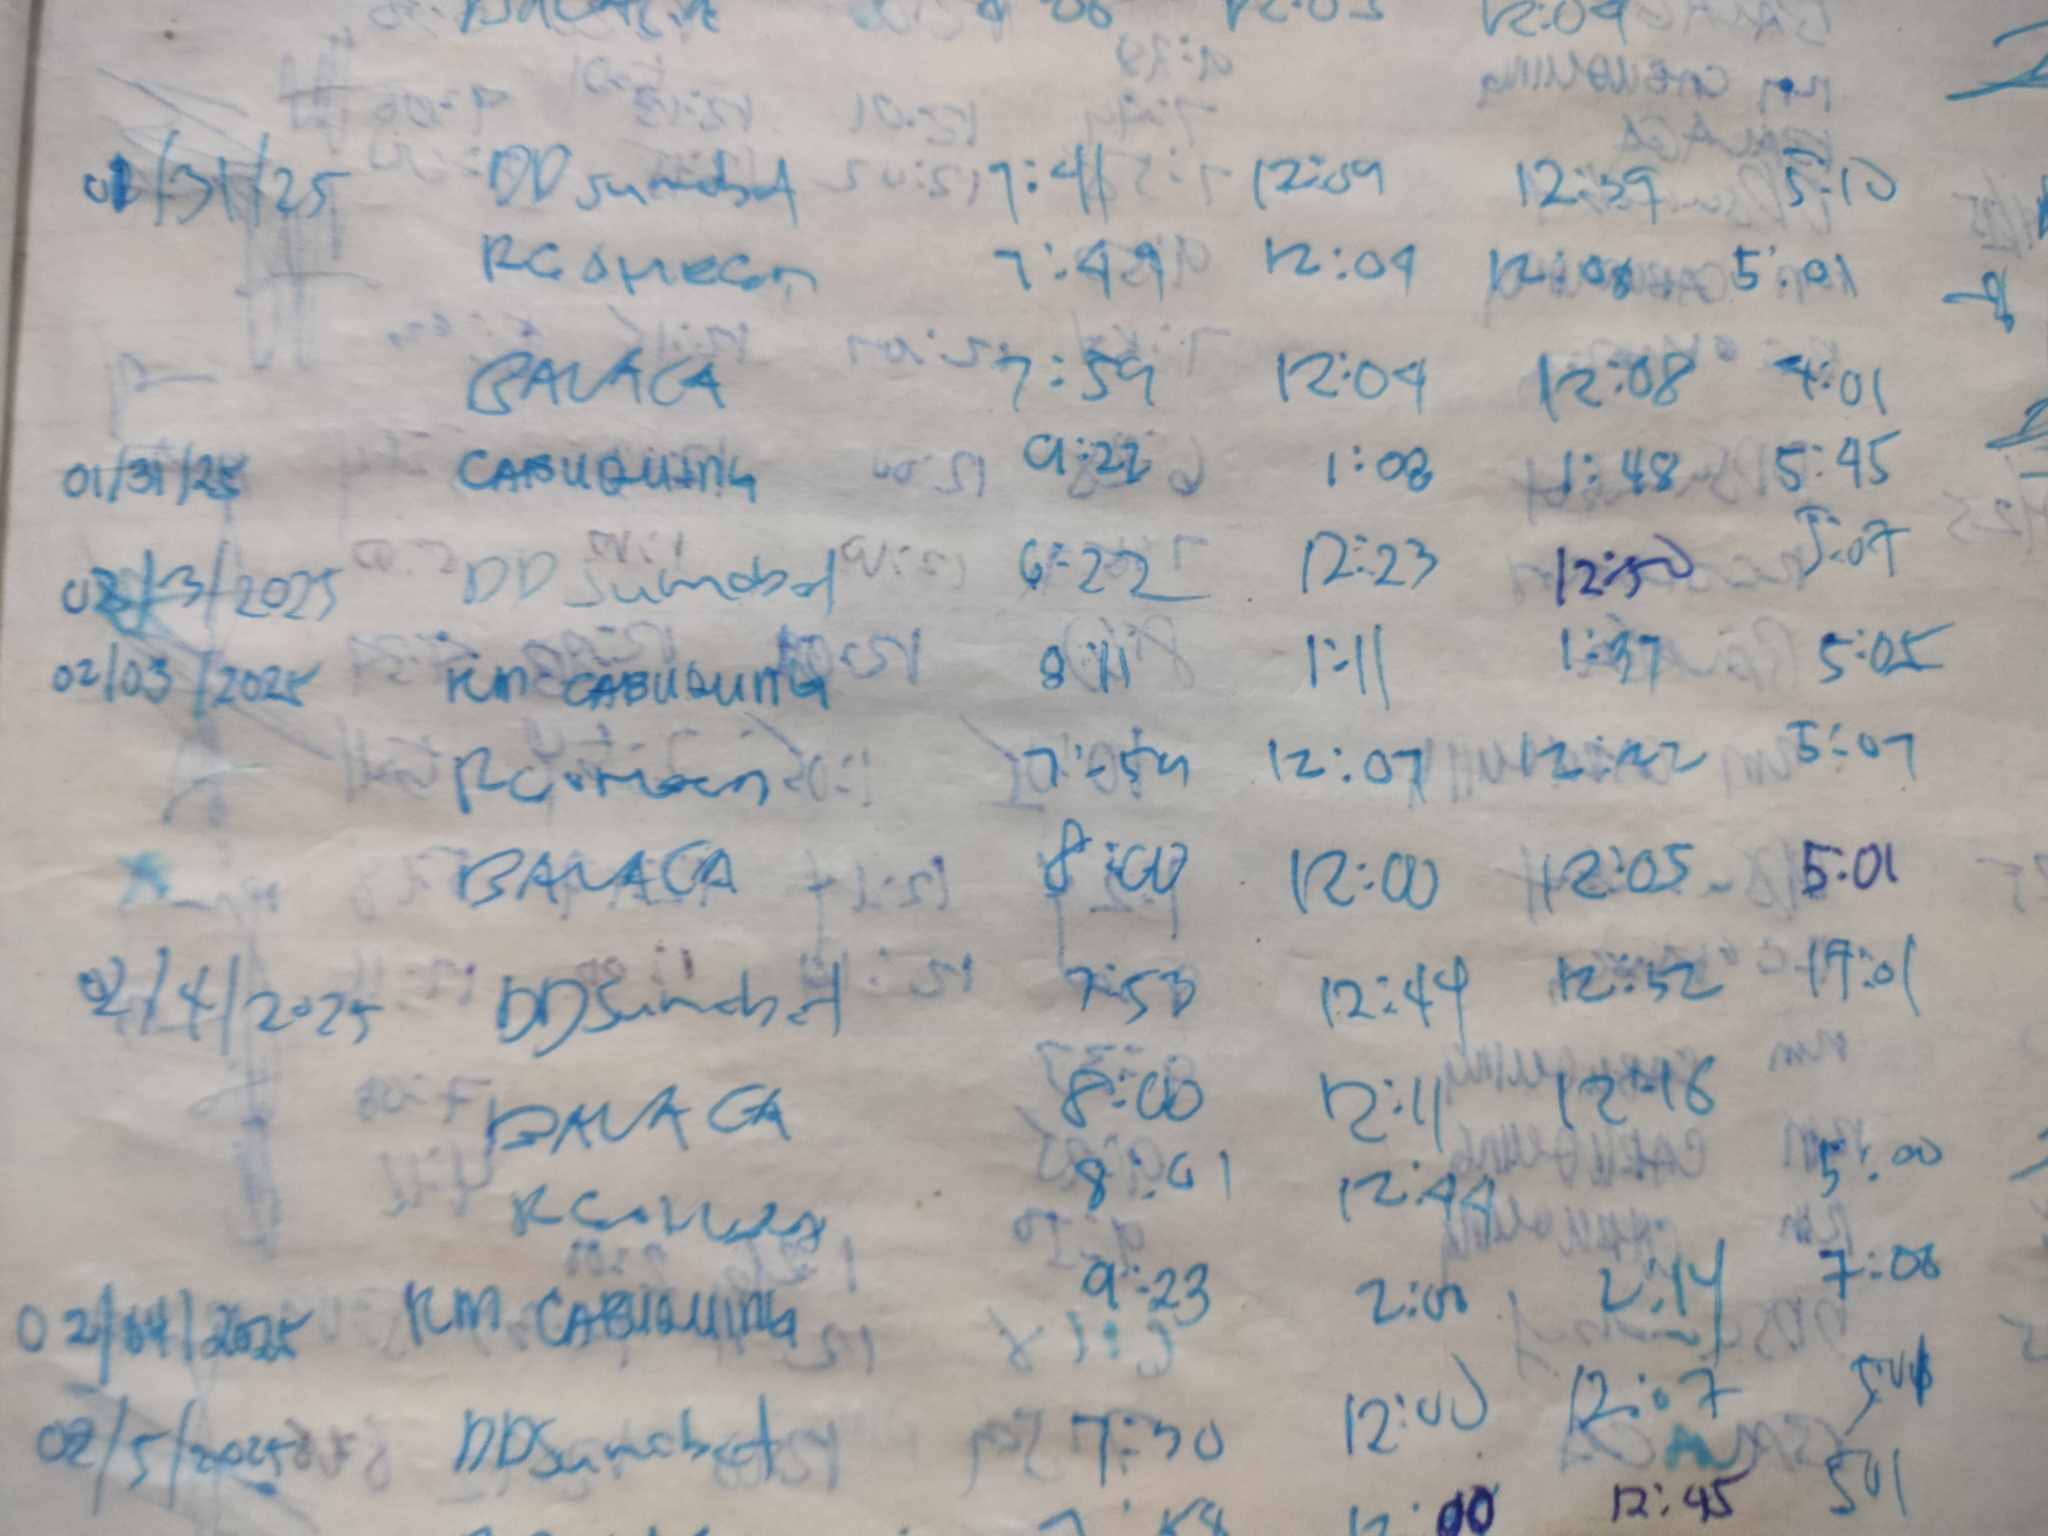 12:03 12:04
01/31/25 DDSumabat 7:41 12:09 12:39 5:10
7:49 12:04 12:08 5:01
BALACA 7:59 12:04 12:08 4:01
01/31/25 CABUQUING 9:22 1:08 1:48 5:45
02/3/2025 DDSumabat 6:22 12:23 12:50 5:07
02/03/2025 RM CABUQUING 8:11 1:11 1:37 5:05
7:59 12:07 12:42 5:07
BALACA 8:00 12:00 12:05 5:01
02/4/2025 DDSumabat 7:53 12:44 12:52 17:01
BALACA 8:00 12:11 12:16
8:01 12:44 5:00
02/04/2025 RM CABUQUING 9:23 2:00 2:14 7:08
02/5/2025 DDSumabat 7:30 12:00 12:07
7:58 12:00 12:45 501